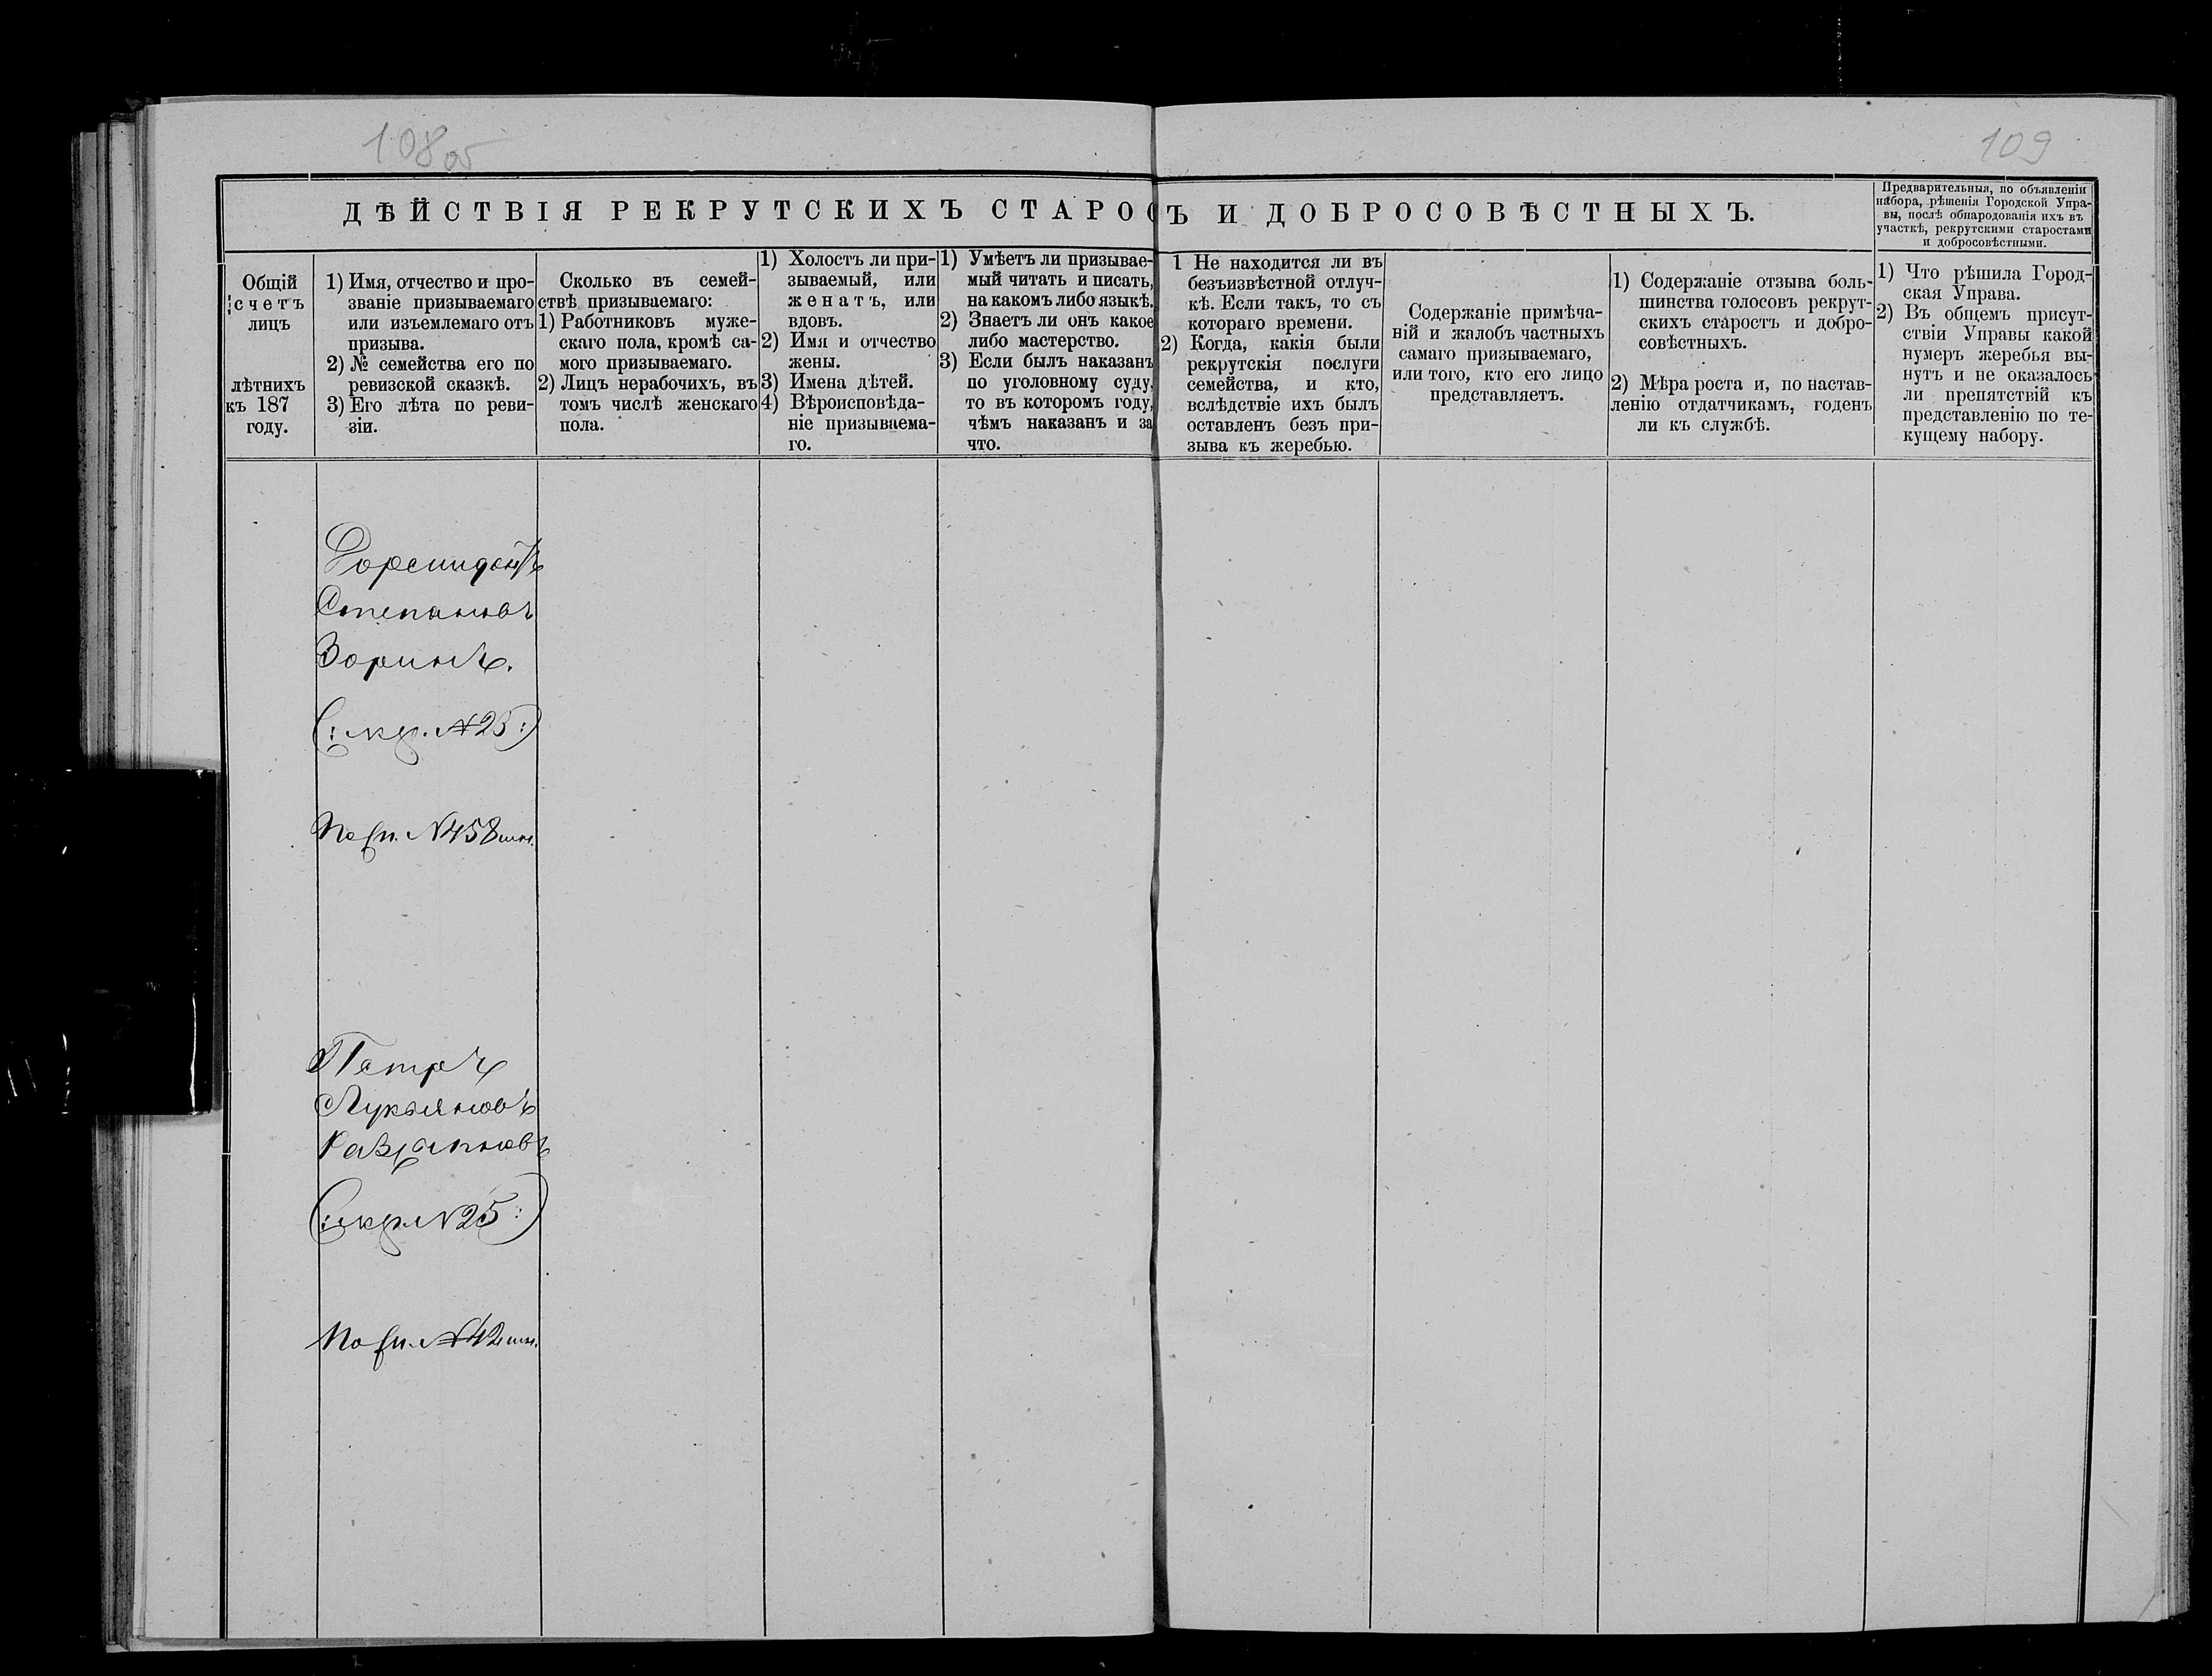 108 об
109
ДѢЙСТВІЯ РЕКРУТСКИХЪ СТАРОСТЪ И ДОБРОСОВѢСТНЫХЪ.
Предварительныя, по объявленіи
набора, рѣшенія Городской Упра-
вы, послѣ обнародованія ихъ въ
участкѣ, рекрутскими старостами
и добросовѣстными.
Общій
счетъ
лицъ
лѣтнихъ
къ 187
году.
1) Имя, отчество и про-
званіе призываемаго
или изъемлемаго отъ
призыва.
2) № семейства его по
ревизской сказкѣ.
3) Его лѣта по реви-
зіи.
Сколько въ семей-
ствѣ призываемаго:
1) Работниковъ муже-
скаго пола, кромѣ са-
мого призываемаго.
2) Лицъ нерабочихъ, въ
томъ числѣ женскаго
пола.
1) Холостъ ли при-
зываемый, или
женатъ, или
вдовъ.
2) Имя и отчество
жены.
3) Имена дѣтей.
4) Вѣроисповѣда-
ніе призываема-
го.
1) Умѣетъ ли призывае-
мый читать и писать,
на какомъ либо языкѣ.
2) Знаетъ ли онъ какое
либо мастерство.
3) Если былъ наказанъ
по уголовному суду,
то въ которомъ году,
чѣмъ наказанъ и за
что.
1 Не находится ли въ
безъизвѣстной отлуч-
кѣ. Если такъ, то съ
котораго времени.
2) Когда, какія были
рекрутскія послуги
семейства, и кто,
вслѣдствіе ихъ былъ
оставленъ безъ при-
зыва къ жеребью.
Содержаніе примѣча-
ній и жалобъ частныхъ
самаго призываемаго,
или того, кто его лицо
представляетъ.
1) Содержаніе отзыва боль-
шинства голосовъ рекрут-
скихъ старостъ и добро-
совѣстныхъ.
2) Мѣра роста и, по настав-
ленію отдатчикамъ, годенъ
ли къ службѣ.
1) Что рѣшила Город-
ская Управа.
2) Въ общемъ присут-
ствіи Управы какой
нумеръ жеребья вы-
нутъ и не оказалось
ли препятствій къ
представленію по те-
кущему набору.
Дормидонтъ
Степановъ
Зоринъ.
№ 25:)
По сп. № 458
Петръ
Лукьяновъ
№ 25:)
По сп. № 42